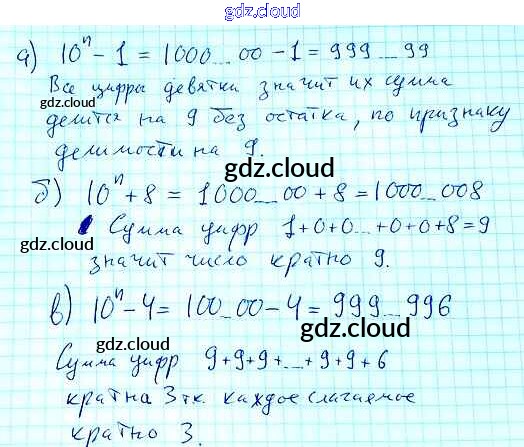 gdz.cloud
а) 10ⁿ - 1 = 1000...00 - 1 = 999...99
Все цифры девятки значит их сумма
gdz.cloud
делится на 9 без остатка, по признаку
делимости на 9.
gdz.cloud
б) 10ⁿ + 8 = 1000...00 + 8 = 1000...008
Сумма цифр 1+0+0...+0+0+8=9
gdz.cloud
значит число кратно 9.
gdz.cloud
в) 10ⁿ - 4 = 100...00 - 4 = 999...996
gdz.cloud
gdz.cloud
Сумма цифр 9+9+9+...+9+9+6
кратна 3 т.к. каждое слагаемое
кратно 3.